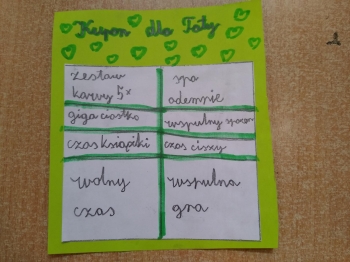 Kupon dla Taty
zestaw
kawy 5x
spa
odemnie
giga ciastko
wspulny spacer
czas książki
czas ciszy
wolny
czas
wspulna
gra